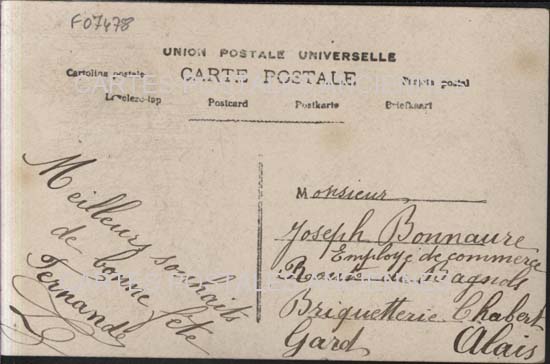 F07478
UNION POSTALE UNIVERSELLE
CARTE POSTALE
Cartolina postale
Levelezo-Lap Postcard Postkarte Briefkaart
Meilleurs souhaits
de bonne fête
Fernande
Monsieur
Joseph Bonnaure
Employé de commerce
Route de Bagnols
Briquetterie Chabert
Gard Alais